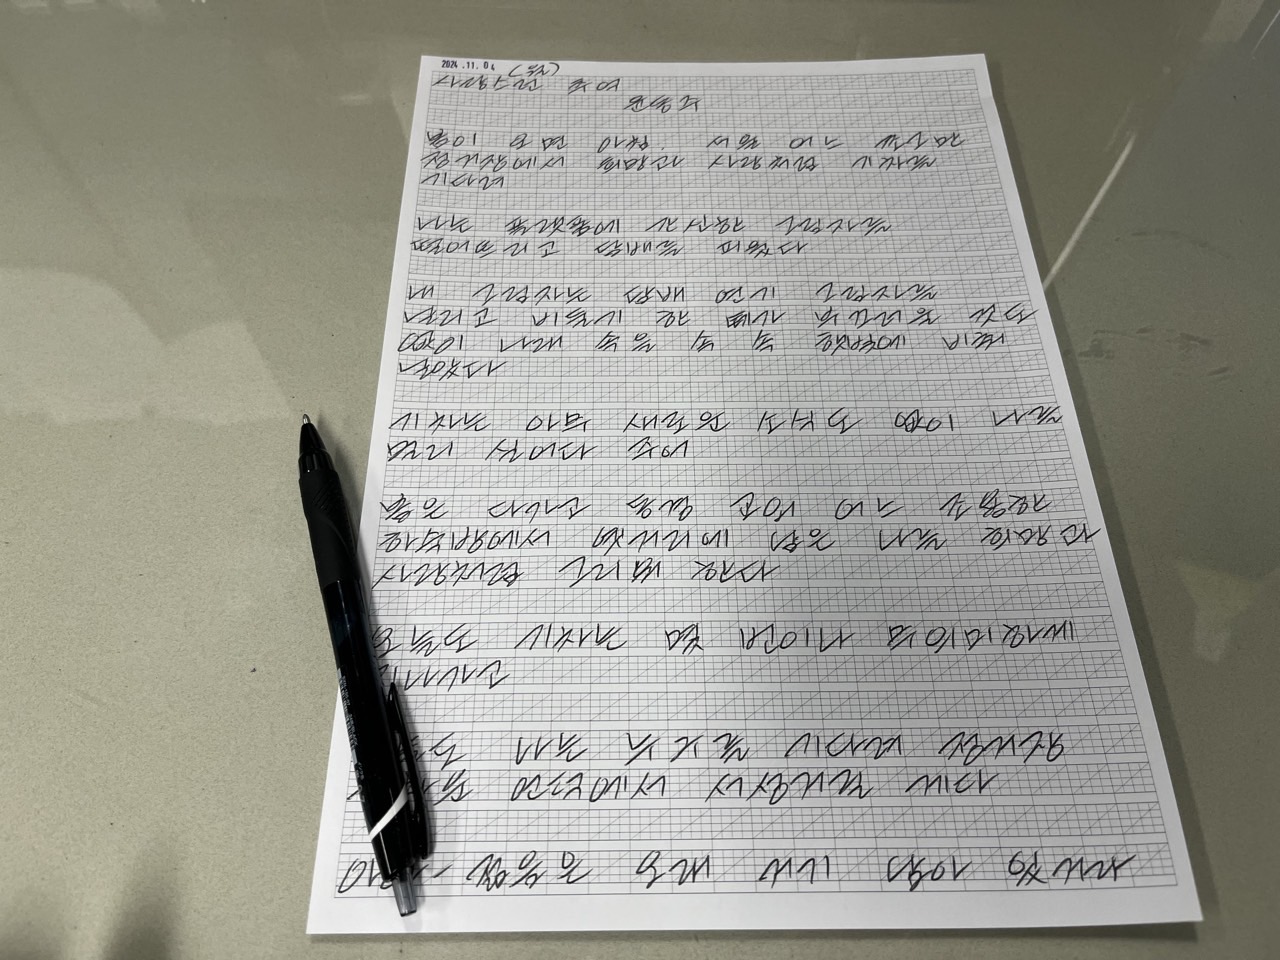 2024.11.04 (월)
사랑스런 추억
윤동주
봄이 오던 아침. 서울 어느 쪼그만
정거장에서 희망과 사랑처럼 기차를
기다려
나는 플랫폼에 간신한 그림자를
떨어뜨리고 담배를 피웠다
내 그림자는 담배 연기 그림자를
날리고 비둘기 한 떼가 부끄러울 것도
없이 나래 속을 속 속 햇빛에 비춰
날았다
기차는 아무 새로운 소식도 없이 나를
멀리 실어다 주어
봄은 다 가고 동경 교외 어느 조용한
하숙방에서 옛거리에 남은 나를 희망과
사랑처럼 그리워한다
오늘도 기차는 몇 번이나 무의미하게
지나가고
도 나는 누구를 기다려 정거장
언덕에서 서성거릴 게다
젊음은 오래 거기 남아 있거라